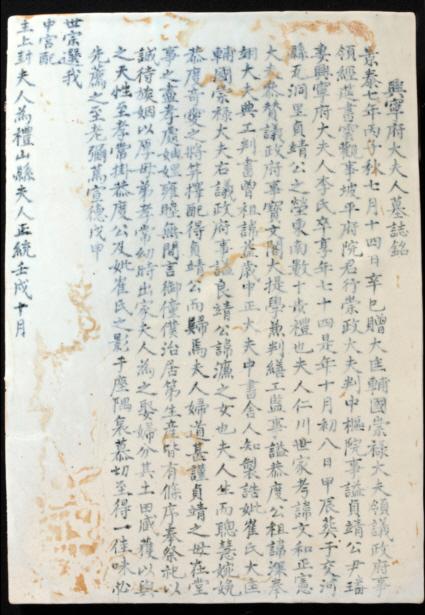 興寧府大夫人墓誌銘
景泰七年丙子秋七月十四日辛巳贈大匡輔國崇祿大夫領議政府事
領經筵書雲觀事坡平府院君行崇政大夫判中樞院事謚貞靖公尹璠
妻興寧府大夫人李氏卒享年七十四是年十月初八日甲辰葬于交河
縣瓦洞里貞靖公之塋東南數十步禮也夫人仁川世家考諱文和正憲
大夫參贊議政府事寶文閣大提學兼判繕工監事謚恭度公祖諱深奉
翊大夫典工判書曾祖諱益歲中正大夫中書舍人知製誥妣崔氏大匡
輔國崇祿大夫右議政府事謚良靖公諱濂之女也夫人生而聰慧婉娩
恭度奇愛之將笄擇配得貞靖公而歸焉夫人婦道甚謹貞靖之母在堂
事之盡孝處妯娌雍睦無間言御僮僕治居第生産皆有條序奉祭祀以
誠待族姻以厚母弟孝常幼時出家夫人爲之娶婦分其土田臧獲以與
之天性至孝常掛恭度公及妣崔氏之影于座隅哀慕切至得一佳味必
先薦之至老彌篤宣德戊申
世宗選我
中宮配
主上封夫人爲禮山縣夫人正統壬戌十月